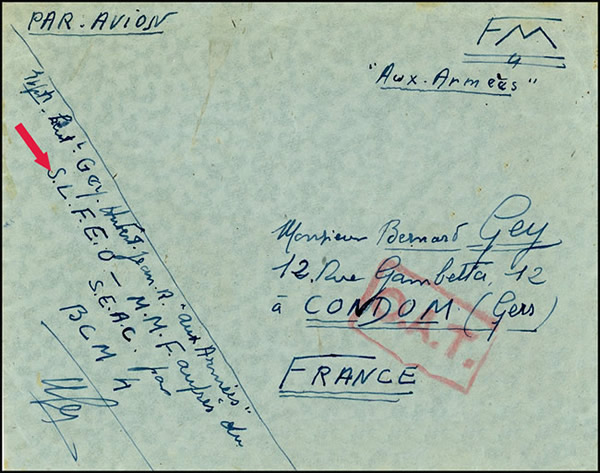 PAR. AVION
FM
4
"Aux. Armées"
Gey. Hubert. Jean. R. "aux Armées"
S. L. F. E. O — M. M. F. auprès du
S. E. A. C. par
B C M 4
Monsieur Bernard Gey
12. Rue Gambetta, 12
à CONDOM (Gers)
FRANCE